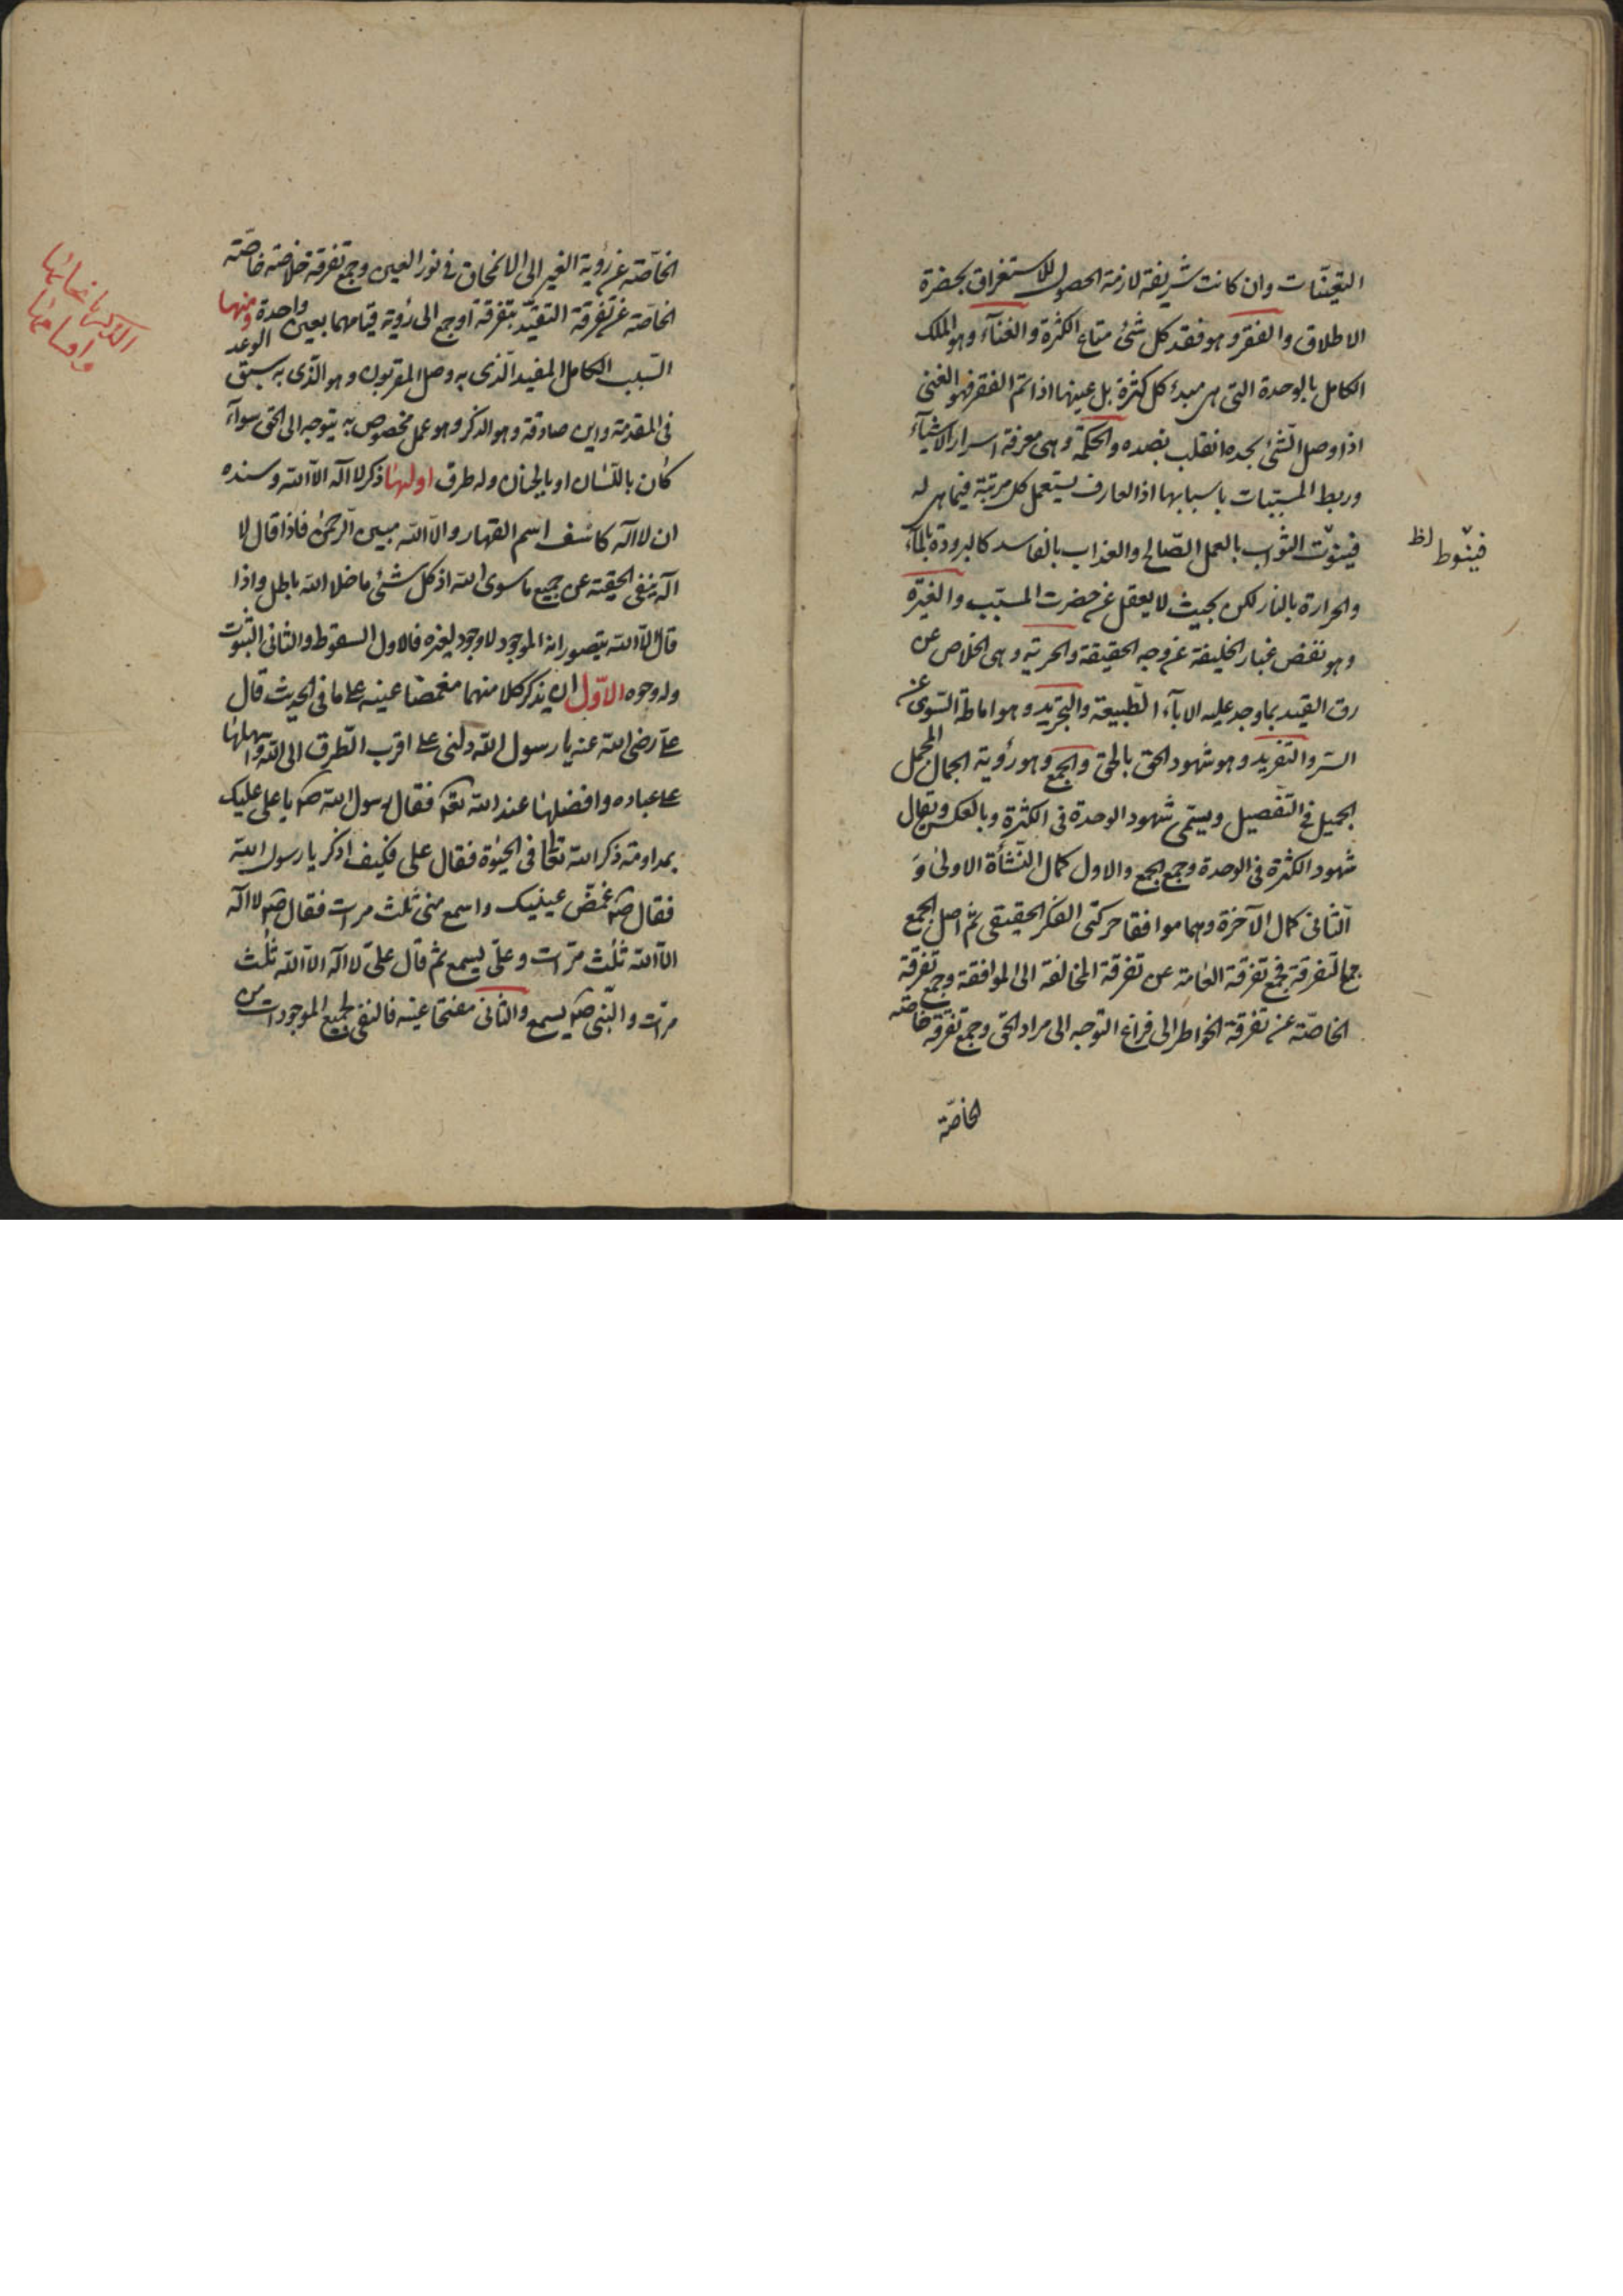 التعينات وان كانت شريفة لازمة الحصول للاستغراق بحضرة
الاطلاق والفقر وهو فقد كل شئ متاع الكثرة والغنآء وهو الملك
الكامل بالوحدة التى هى مبدء كل كثرة بل عينها اذا تم الفقر فهو الغنى
اذا وصل الشئ بحده انقلب بضده والحكمة وهى معرفة اسرار الاشيآء
وربط المسببات باسبابها اذ العارف يستعمل كل مرتبة فيما هى له
فينوت الثواب بالعمل الصالح والعذاب بالفاسد كالبرودة بالمآء
فينوط لظ
والحرارة بالنار لكن بحيث لا يعقل عن حضرت المسبب والغيرة
وهو نفض غبار الخليفة عن وجه الحقيقة والحرية وهى الخلاص عن
رق القيد بما وجد عليه الابآء الطبيعة والتجريد وهو اماطة السوى عن
السر والتفريد وهو شهود الحق بالحق والجمع وهو رؤية الجمال المجمل
الجميل فى التفصيل ويسمى شهود الوحدة فى الكثرة وبالعكس ويقال
شهود الكثرة فى الوحدة وجمع الجمع والاول كمال النشأة الاولى و
الثانى كمال الآخرة وهما موافقا حركتى الفكر الحقيقى ثم اصل الجمع
جمع التفرقة فجمع تفرقة العامة عن تفرقة المخالفة الى الموافقة وجمع تفرقة
الخاصة عن تفرقة الخواطر الى فراغ التوجه الى مراد الحق وجمع تفرقة خاصة
الخاصة
الخاصة عن رؤية الغير الى الانمحاق فى نور العين وجمع تفرقة خلاصة خاصة
الخاصة عن تفرقة التقيد بتفرقة او جمع الى رؤية قيامهما بعين واحدة ومنها
السبب الكامل المفيد الذى به وصل المقربون وهو الذى به سبق الوعد
فى المقدمة واين صادقة وهو الذكر وهو عمل مخصوص به يتوجه الى الحق سوآء
كان باللسان او بالجنان وله طرق اولها ذكر لا اله الا الله وسنده
ان لا اله كاشف اسم القهار والا الله مبين الرحمن فاذا قال لا
اله ينفى الحقيقة عن جميع ما سوى الله اذ كل شئ ما خلا الله باطل واذا
قال الا الله يتصور انه الموجود لا وجود لغيره فالاول السقوط والثانى الثبوت
وله وجوه الاول ان يذكر كلا منهما مغمضا عينه على ما فى الحديث قال
على رضى الله عنه يا رسول الله دلنى على اقرب الطرق الى الله واسهلها
على عباده وافضلها عند الله تعالى فقال رسول الله صلم يا على عليك
بمداومة ذكر الله تعالى فى الخلوة فقال على فكيف اذكر يا رسول الله
فقال صلم غمض عينيك واسمع منى ثلث مرات فقال صلم لا اله
الا الله ثلث مرات وعلى يسمع ثم قال على لا اله الا الله ثلث
مرات والنبى صلم يسمع والثانى مفتحا عينه فالنفى لجميع الموجودات من